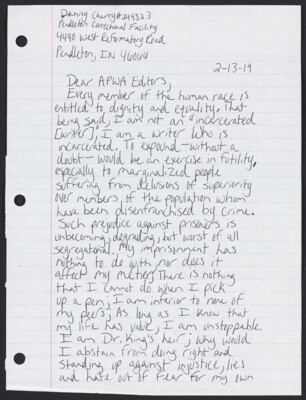 Danny Cherry #249323
Pendleton Correctional Facility
4490 West Reformatory Road
Pendleton, IN 46064
2-13-19
Dear APWA Editors,
Every member of the human race is
entitled to dignity and equality. That
being said, I am not an "incarcerated
[writer]," I am a writer who is
incarcerated. To expound—without a
doubt—would be an exercise in futility,
especially to marginalized people
suffering from delusions of superiority
over members of the population whom
have been disenfranchised by crime.
Such prejudice against prisoners is
unbecoming, degrading, but worst of all
segregational. My imprisonment has
nothing to do with nor does it
affect my metier; There is nothing
that I cannot do when I pick
up a pen; I am inferior to none of
my peers; As long as I know that
my life has value, I am unstoppable.
I am Dr. King's heir; why would
I abstain from doing right and
standing up against injustice, lies
and hate out of fear for my own